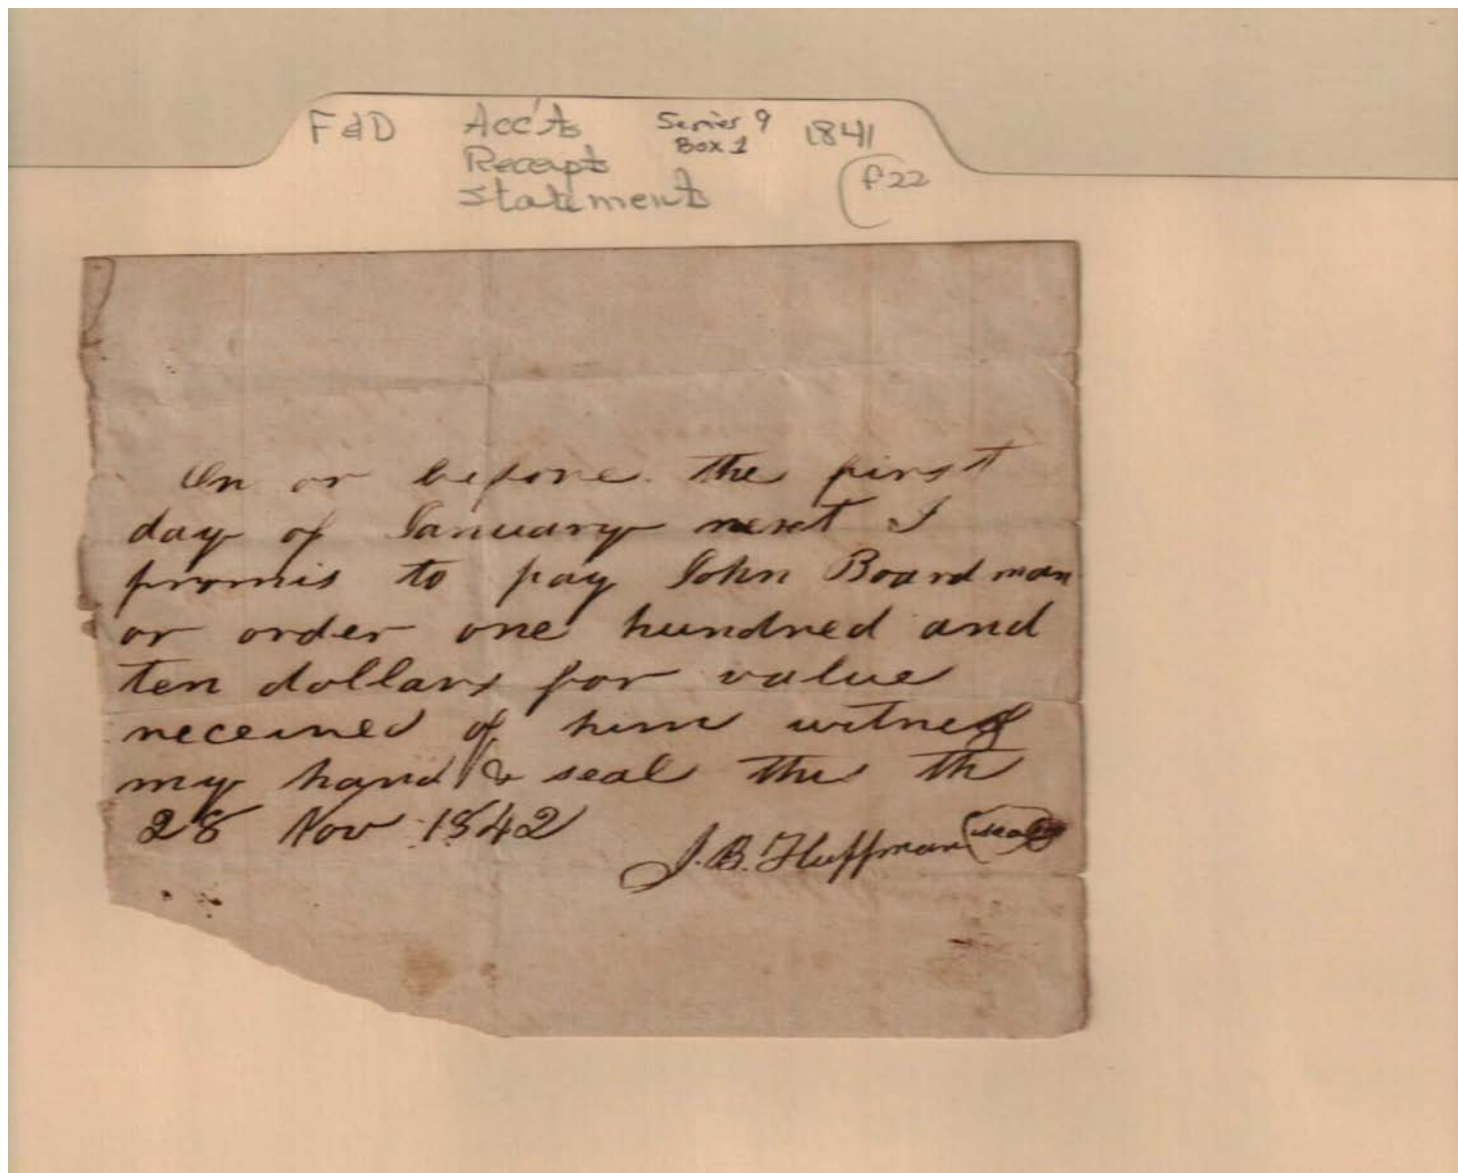 F&D Acc'ts Series 9 1841
Receipts Box 1
Statements f22
On or before the first
day of January next I
promis to pay John Boardman
or order one hundred and
ten dollars for value
received of him witness
my hand & seal this th
28 Nov 1842
J.B. Huffman (seal)